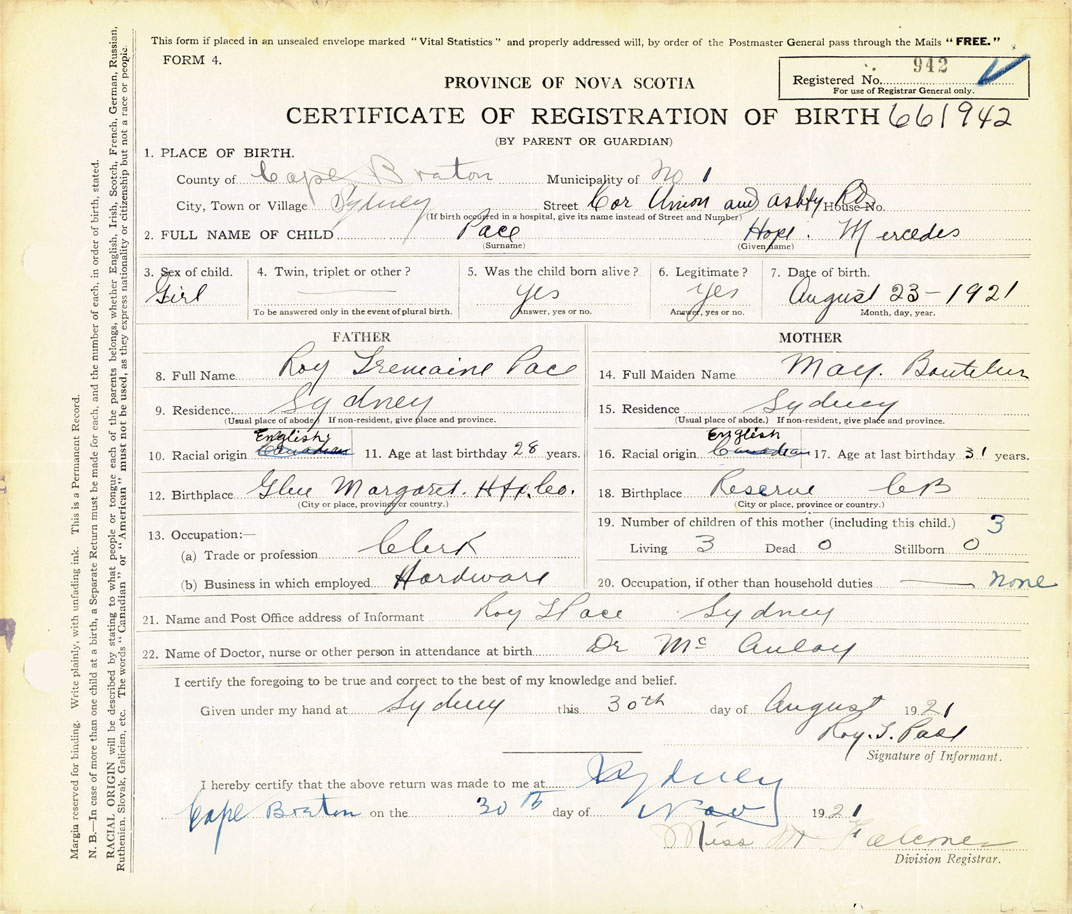 This form if placed in an unsealed envelope marked "Vital Statistics" and properly addressed will, by order of the Postmaster General pass through the Mails "FREE."
FORM 4.
Registered No. 942
For use of Registrar General only.
PROVINCE OF NOVA SCOTIA
CERTIFICATE OF REGISTRATION OF BIRTH 661942
(BY PARENT OR GUARDIAN)
1. PLACE OF BIRTH.
County of Cape Braton Municipality of No 1
City, Town or Village Sydney Street Cor Union and ashby Rd House No.
(If birth occurred in a hospital, give its name instead of Street and Number)
2. FULL NAME OF CHILD Pace Hope. Mercedes
(Surname) (Given name)
3. Sex of child. 4. Twin, triplet or other? 5. Was the child born alive? 6. Legitimate? 7. Date of birth.
Girl yes yes August 23-1921
To be answered only in the event of plural birth. Answer, yes or no. Answer, yes or no. Month, day, year.
FATHER
8. Full Name Roy Tremaine Pace
9. Residence Sydney
(Usual place of abode.) If non-resident, give place and province.
English
10. Racial origin Canadian 11. Age at last birthday 28 years.
12. Birthplace Glen Margaret. Hfx. Co.
(City or place, province or country.)
13. Occupation:—
(a) Trade or profession Clerk
(b) Business in which employed Hardware
MOTHER
14. Full Maiden Name May. Boutelier
15. Residence Sydney
(Usual place of abode.) If non-resident, give place and province.
English
16. Racial origin Canadian 17. Age at last birthday 31 years.
18. Birthplace Reserve CB
(City or place, province or country.)
19. Number of children of this mother (including this child.) 3
Living 3 Dead 0 Stillborn 0
20. Occupation, if other than household duties none
21. Name and Post Office address of Informant Roy T Pace Sydney
22. Name of Doctor, nurse or other person in attendance at birth Dr Mc Aulay
I certify the foregoing to be true and correct to the best of my knowledge and belief.
Given under my hand at Sydney this 30th day of August 1921
Roy. T. Pace
Signature of Informant.
I hereby certify that the above return was made to me at Sydney
Cape Braton on the 30th day of Nov 1921
Miss Falconer
Division Registrar.
Margin reserved for binding. Write plainly, with unfading ink. This is a Permanent Record.
N. B.—In case of more than one child at a birth, a Separate Return must be made for each, and the number of each, in order of birth, stated.
RACIAL ORIGIN will be described by stating to what people or tongue each of the parents belongs, whether English, Irish, Scotch, French, German, Russian,
Ruthenian, Slovak, Galician, etc. The words "Canadian" or "American" must not be used, as they express nationality or citizenship but not a race or people.